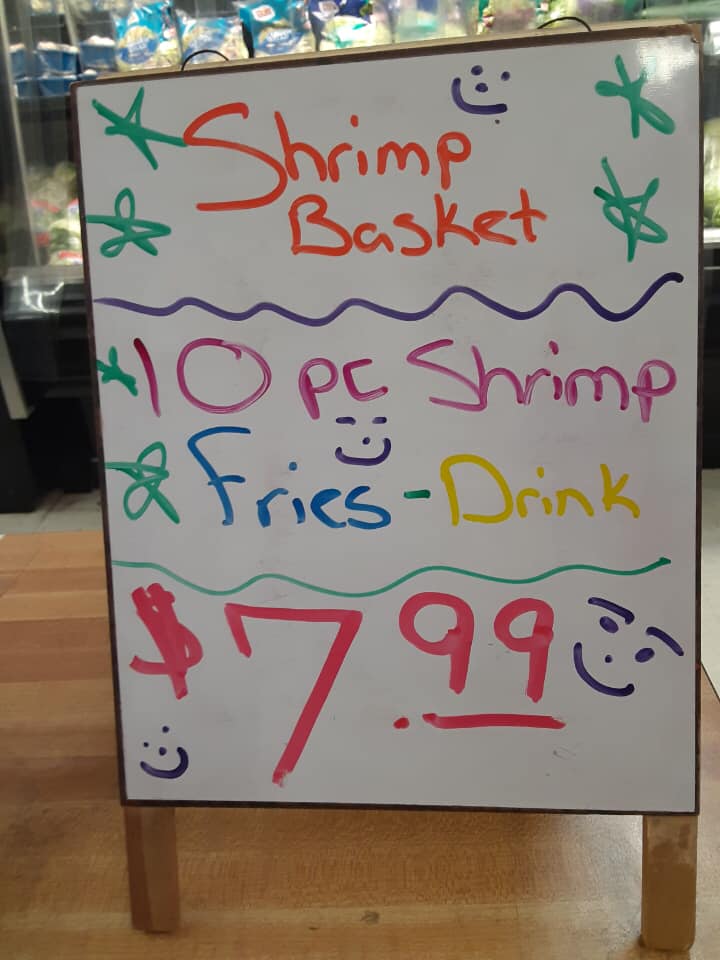 Shrimp
Basket
10 pc Shrimp
Fries - Drink
$7.99